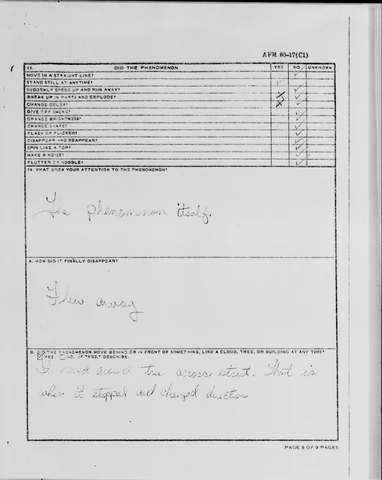 AFR 80-17(C1)
13. DID THE PHENOMENON YES NO UNKNOWN
MOVE IN A STRAIGHT LINE?
STAND STILL AT ANYTIME?
SUDDENLY SPEED UP AND RUN AWAY?
BREAK UP IN PARTS AND EXPLODE?
CHANGE COLOR?
GIVE OFF SMOKE?
CHANGE BRIGHTNESS?
CHANGE SHAPE?
FLASH OR FLICKER?
DISAPPEAR AND REAPPEAR?
SPIN LIKE A TOP?
MAKE A NOISE?
FLUTTER OR WOBBLE?
WHAT DREW YOUR ATTENTION TO THE PHENOMENON?
The phenomenon itself.
A. HOW DID IT FINALLY DISAPPEAR?
Flew away
B. DID THE PHENOMENON MOVE BEHIND OR IN FRONT OF SOMETHING, LIKE A CLOUD, TREE, OR BUILDING AT ANY TIME?
YES NO. IF "YES," DESCRIBE.
around tree across street. That is
where it stopped and changed direction
PAGE 5 OF 9 PAGES